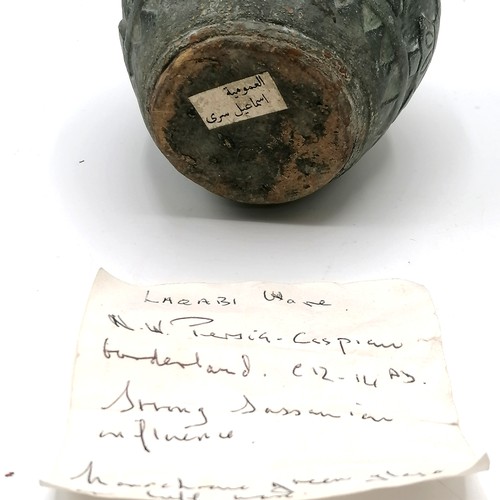 العمومية
اسماعيل سرى
LAQABI Ware.
N.W. Persia - Caspian
borderland. C12-14 AD.
Strong Sassanian
influence.
Monochrome green glaze